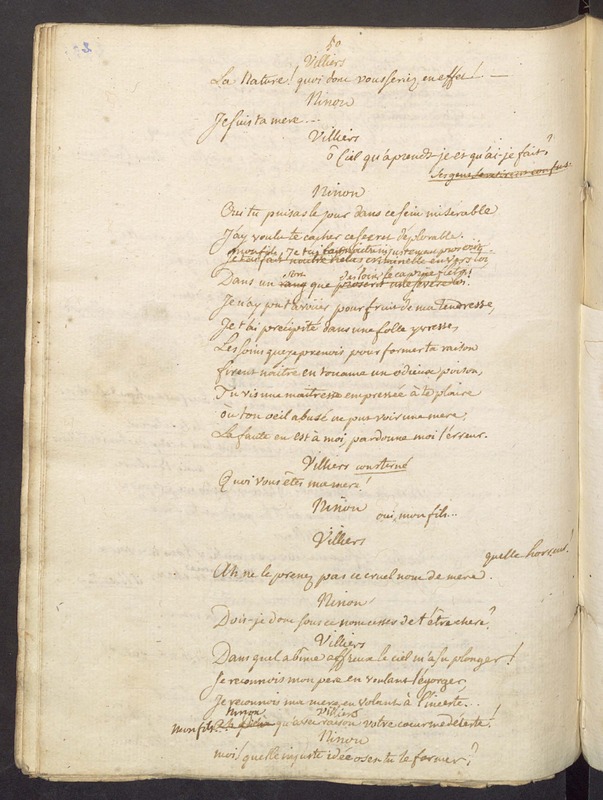 50
Villiers
La Nature! quoi donc vous seriez en effet!
Ninon
Je suis ta mere...
Villiers
ô Ciel qu'aprends-je et qu'ai-je fait?
Ninon
Oui tu puisas le jour dans ce sein misérable
J'ay voulu te cacher ce secret déplorable.
mon fils, Je t'ai fait
Dans un sein que des loix
Je n'ay pour fruit de ma tendresse,
Je t'ai précipité dans une folle yvresse,
Les soins que je prenois pour former ta raison
firent naître en ton ame un odieux poison,
Tu vis une maitresse empressée à te plaire
où ton oeil abusé ne put voir une mere,
La faute en est à moi, pardonne moi l'erreur.
Villiers consterné
Quoi vous êtes ma mere!
Ninon
oui, mon fils...
Villiers
quelle horreur!
Ah ne le prenez pas ce cruel nom de mere.
Ninon
Dois-je donc sous ce nom cesser de t'être chere?
Villiers
Dans quel abîme affreux le ciel m'a su plonger!
Je reconnois mon pere en voulant l'égorger,
Je reconnois ma mere en volant à l'inceste...
Ninon
mon fils...
Villiers
qu'avec raison votre coeur me déteste!
Ninon
moi! quelle injuste idée oses tu te former?